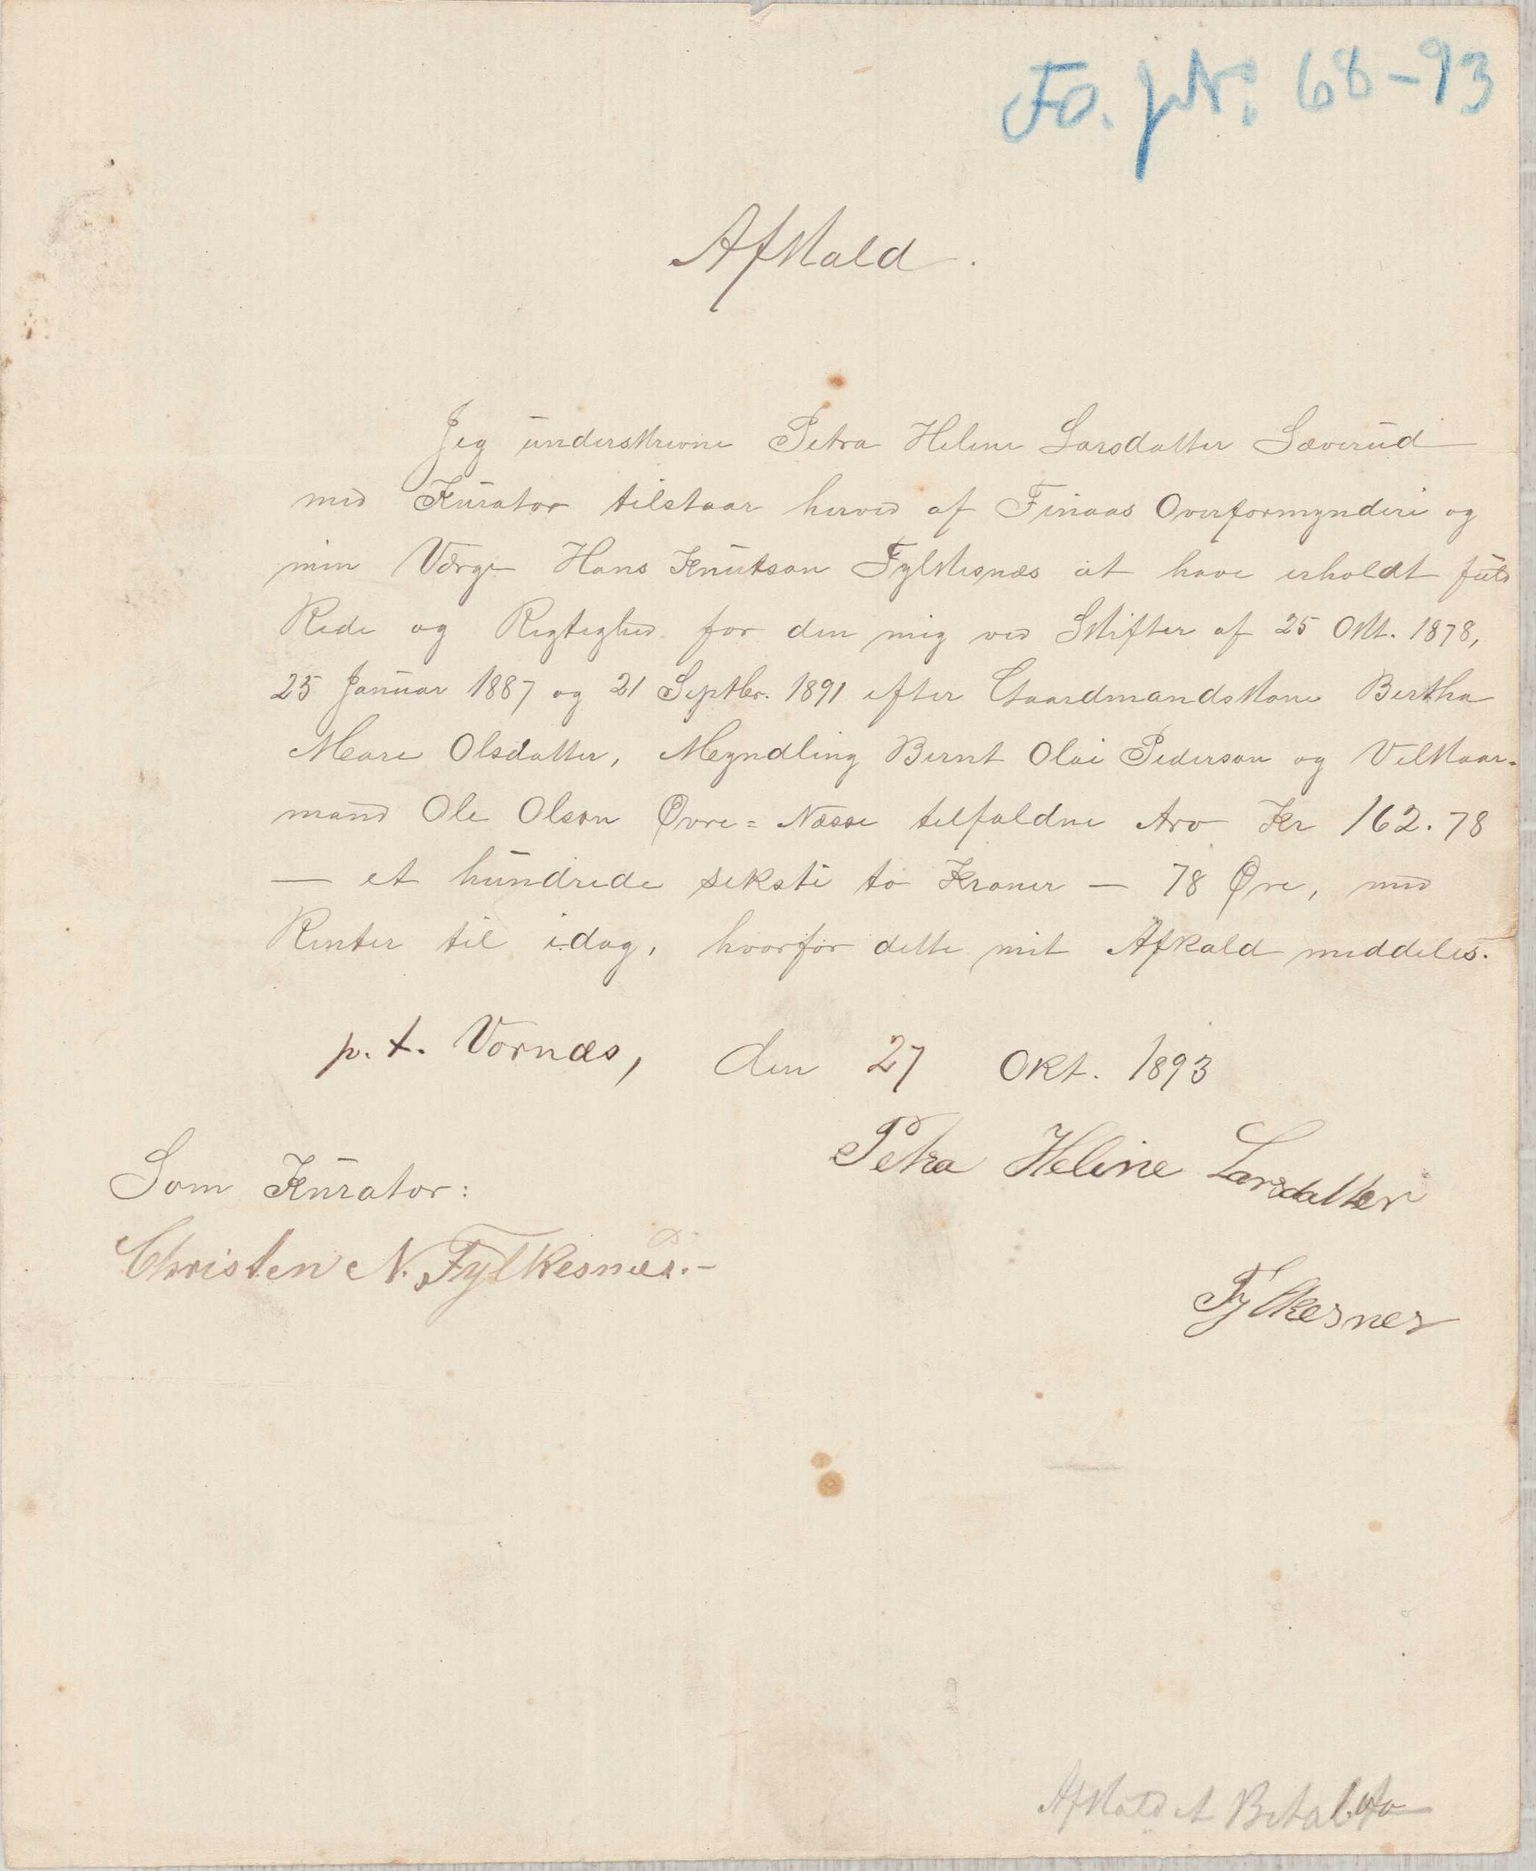 Fo. jNr: 68-93
Afkald.
Jeg underskrevne Petra Heline Larsdatter Sæverud
med Kurator tilstaar herved af Finaas Overformynderi og
min Værge Hans Knutson Fylkesnæs at have erholdt fuld
Rede og Rigtighed for den mig ved Skifter af 25 Okt. 1878,
25 Januar 1887 og 21 Septbr. 1891 efter Gaardmandskone Bertha
Mare Olsdatter, Myndling Bernt Olai Pederson og Velkaar-
mand Ole Olson Øvre=Næsse tilfaldne Arv Kr 162.78
— et hundrede seksti to Kroner — 78 Øre, med
Renter til idag, hvorfor dette mit Afkald meddeles.
p. t. Vornæs, den 27 Okt. 1893
Petra Heline Larsdatter
Som Kurator:
Christen N. Fylkesnæs.-
Fylkesnes
Afkaldet Betalt